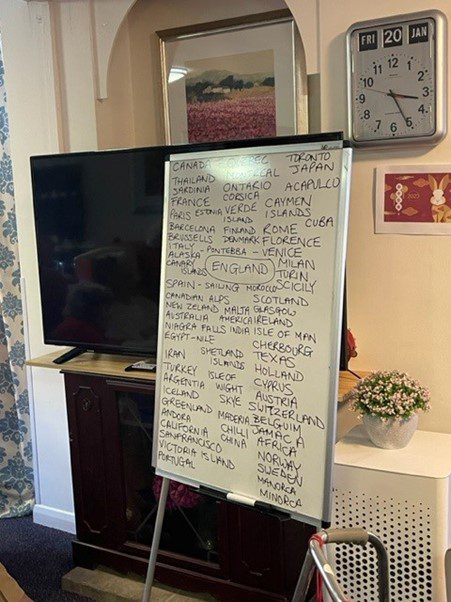 FRI 20 JAN
12
1
2
3
4
5
6
7
8
9
10
11
2023
CANADA QUEBEC TORONTO
THAILAND MONTREAL JAPAN
SARDINIA ONTARIO ACAPULCO
FRANCE CORSICA CAYMEN
PARIS ESTONIA VERDE ISLANDS
ISLAND
BARCELONA FINLAND ROME CUBA
BRUSSELLS DENMARK FLORENCE
ITALY - PONTEBBA - VENICE
ALASKA MILAN
CANARY ISLANDS ENGLAND TURIN
SPAIN - SAILING MOROCCO SCICILY
CANADIAN ALPS SCOTLAND
NEW ZELAND MALTA GLASGOW
AUSTRALIA AMERICA IRELAND
NIAGRA FALLS INDIA ISLE OF MAN
EGYPT - NILE CHERBOURG
IRAN SHETLAND ISLANDS TEXAS
TURKEY ISLE OF HOLLAND
ARGENTIA WIGHT CYPRUS
ICELAND SKYE AUSTRIA
GREENLAND SWITZERLAND
ANDORA MADERIA BELGUIM
CALIFORNIA CHILLI JAMACA
SANAFRANCISCO CHINA AFRICA
VICTORIA ISLAND NORWAY
PORTUGAL SWEDEN
MANORCA
MINORCA